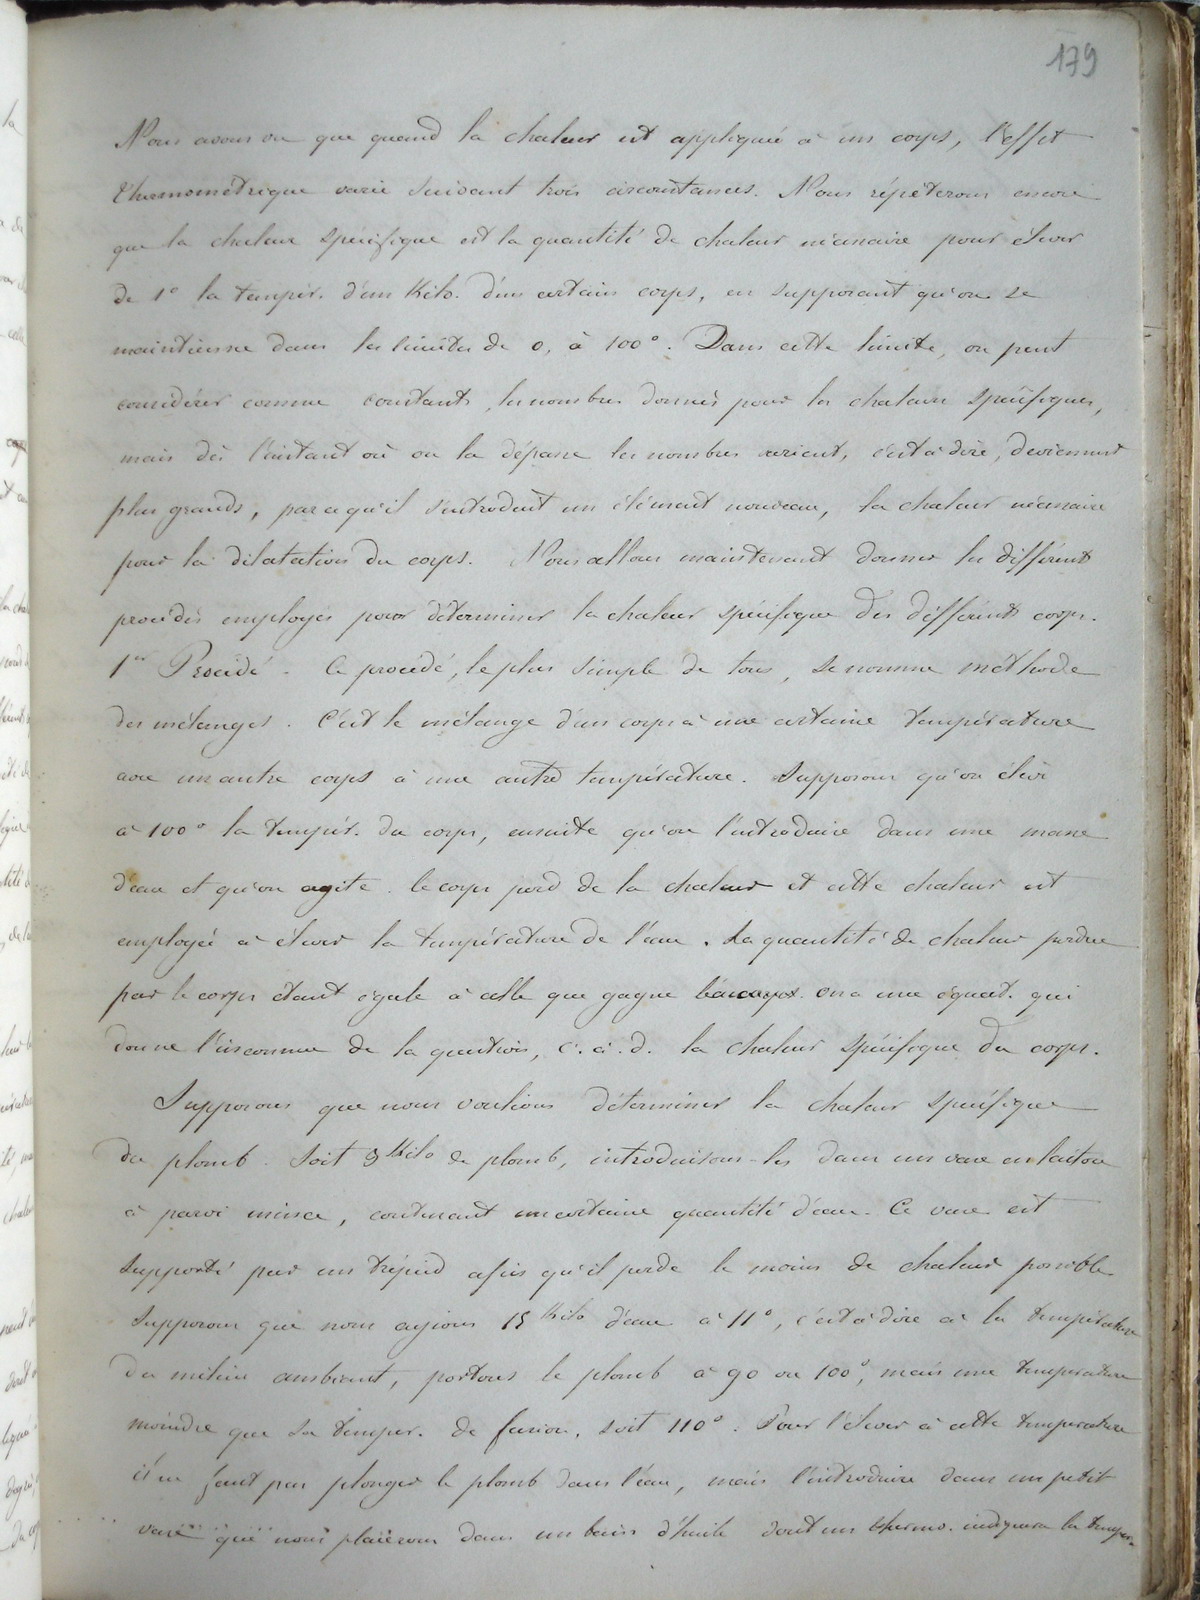 179
Nous avons vu que quand la chaleur est appliquée à un corps, l'effet
thermométrique varie suivant trois circonstances. Nous répéterons encore
que la chaleur spécifique est la quantité de chaleur nécessaire pour élever
de 1° la tempér. d'un Kilo. d'un certain corps, en supposant qu'on se
maintienne dans les limites de 0, à 100°. Dans cette limite, on peut
considérer comme constants, les nombres donnés pour les chaleurs spécifiques,
mais dès l'instant où on la dépasse les nombres varient, c'est à dire, deviennent
plus grands, parce qu'il s'introduit un élément nouveau, la chaleur nécessaire
pour la dilatation du corps. Nous allons maintenant donner les différents
procédés employés pour déterminer la chaleur spécifique des différents corps.
1er Procédé. Ce procédé, le plus simple de tous, se nomme méthode
des mélanges. C'est le mélange d'un corps à une certaine température
avec un autre corps à une autre température. Supposons qu'on élève
à 100° la tempér. du corps, ensuite qu'on l'introduise dans une masse
d'eau et qu'on agite. le corps perd de la chaleur et cette chaleur est
employée à élever la température de l'eau. La quantité de chaleur perdue
par le corps étant égale à celle que gagne on a une équat. qui
donne l'inconnue de la question, c. à. d. la chaleur spécifique du corps.
Supposons que nous voulions déterminer la chaleur spécifique
du plomb. Soit 3 Kilo de plomb, introduisons-les dans un vase en laiton
à paroi mince, contenant une certaine quantité d'eau. Ce vase est
supporté par un trépied afin qu'il perde le moins de chaleur possible
Supposons que nous ayions 15 Kilo d'eau à 11°, c'est à dire à la température
du milieu ambiant, portons le plomb à 90 ou 100°, mais une température
moindre que sa temper. de fusion, soit 110°. Pour l'élever à cette température
il ne faut pas plonger le plomb dans l'eau, mais l'introduire dans un petit
vase que nous placerons dans un bain d'huile dont un thermo. indiquera la temper.